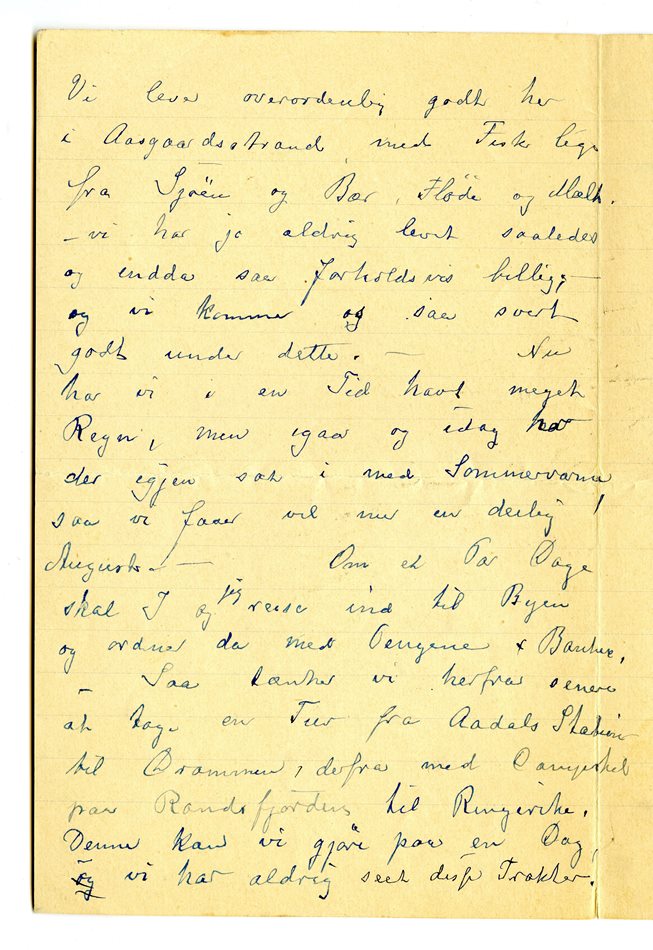 Vi lever overordenlig godt her
i Aasgaardsstrand, med Fisk lige
fra Sjøen og Bær, Fløde og Mælk.
– vi har jo aldrig levet saaledes
og endda saa forholdsvis billig, –
og vi kommer os saa svert
godt under dette. – Nu
har vi i en Tid havt meget
Regn, men igaar og idag har
der igjen sat i med Sommervarme
saa vi faaer vel nu en deilig
August. – Om et Par Dage
skal I og jeg reise ind til Byen
og ordner da med Pengene & Banken,
– Saa tænker vi herfra senere
at tage en Tur fra Aadals Station
til Drammen, derfra med
paa Randsfjorden til Ringerike.
Denne kan vi gjøre paa en Dag,
og vi har aldrig seet disse Trakter.